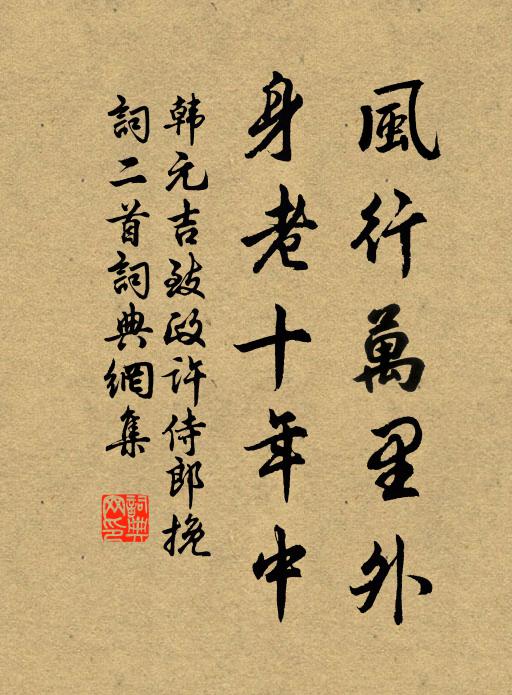 風行萬里外
身老十年中
韩元吉致政许侍郎挽
詞二首詞典網集
詞典
网印